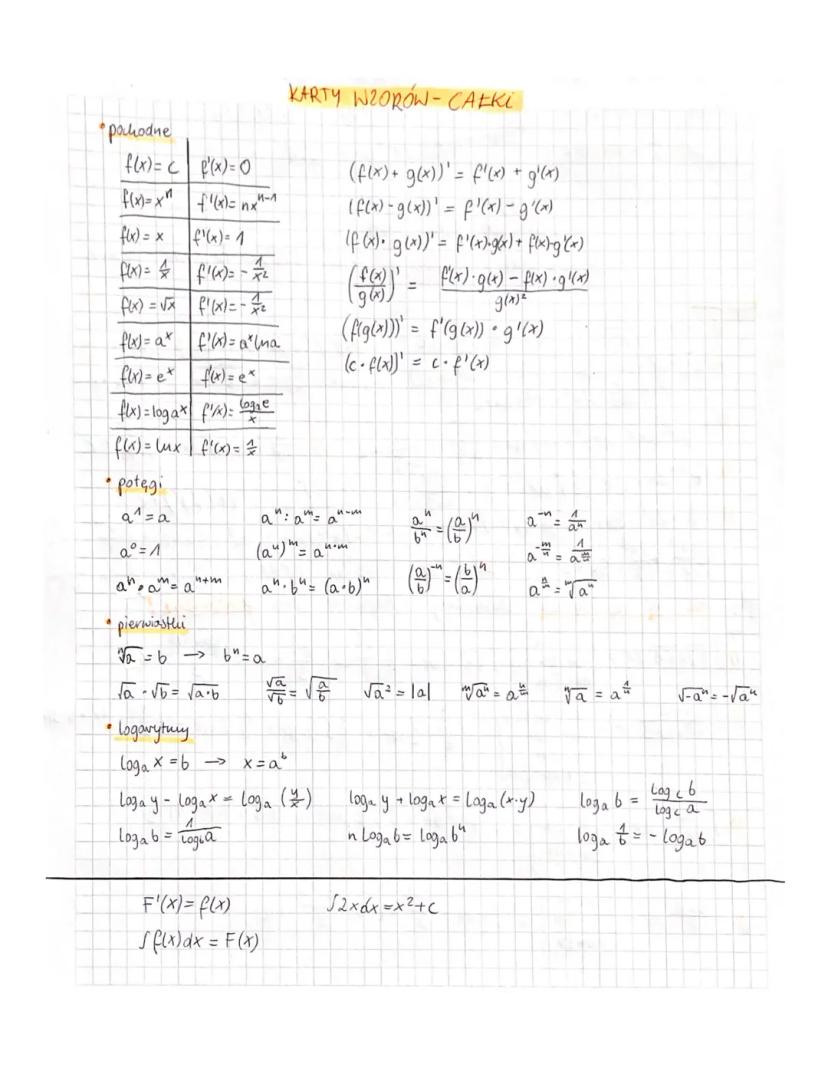 KARTY WZORÓW - CAŁKI
• pochodne
f(x) = c | f'(x) = 0
f(x) = xⁿ | f'(x) = nxⁿ⁻¹
f(x) = x | f'(x) = 1
f(x) = 1/x | f'(x) = - 1/x²
f(x) = √x | f'(x) = - 1/x²
f(x) = aˣ | f'(x) = aˣ ln a
f(x) = eˣ | f(x) = eˣ
f(x) = log aˣ | f'(x) = logₐe/x
f(x) = ln x | f'(x) = 1/x
(f(x) + g(x))' = f'(x) + g'(x)
(f(x) - g(x))' = f'(x) - g'(x)
(f(x) · g(x))' = f'(x)·g(x) + f(x)·g'(x)
(f(x)/g(x))' = f'(x)·g(x) - f(x)·g'(x) / g(x)²
(f(g(x)))' = f'(g(x)) · g'(x)
(c · f(x))' = c · f'(x)
• potęgi
a¹ = a aⁿ : aᵐ = aⁿ⁻ᵐ aⁿ/bⁿ = (a/b)ⁿ a⁻ⁿ = 1/aⁿ
a⁰ = 1 (aⁿ)ᵐ = aⁿ·ᵐ a^(-m/n) = 1/a^(m/n)
aⁿ · aᵐ = aⁿ⁺ᵐ aⁿ · bⁿ = (a·b)ⁿ (a/b)⁻ⁿ = (b/a)ⁿ a^(n/m) = ᵐ√aⁿ
• pierwiastki
ⁿ√a = b → bⁿ = a
√a · √b = √a·b √a/√b = √a/b √a² = |a| ᵐ√aⁿ = a^(n/m) ⁿ√a = a^(1/n) √-aⁿ = -√aⁿ
• logarytmy
logₐ x = b → x = aᵇ
logₐ y - logₐ x = logₐ (y/x) logₐ y + logₐ x = logₐ (x·y) logₐ b = log_c b / log_c a
logₐ b = 1/log_b a n logₐ b = logₐ bⁿ logₐ 1/b = - logₐ b
F'(x) = f(x) ∫2xdx = x² + c
∫f(x)dx = F(x)